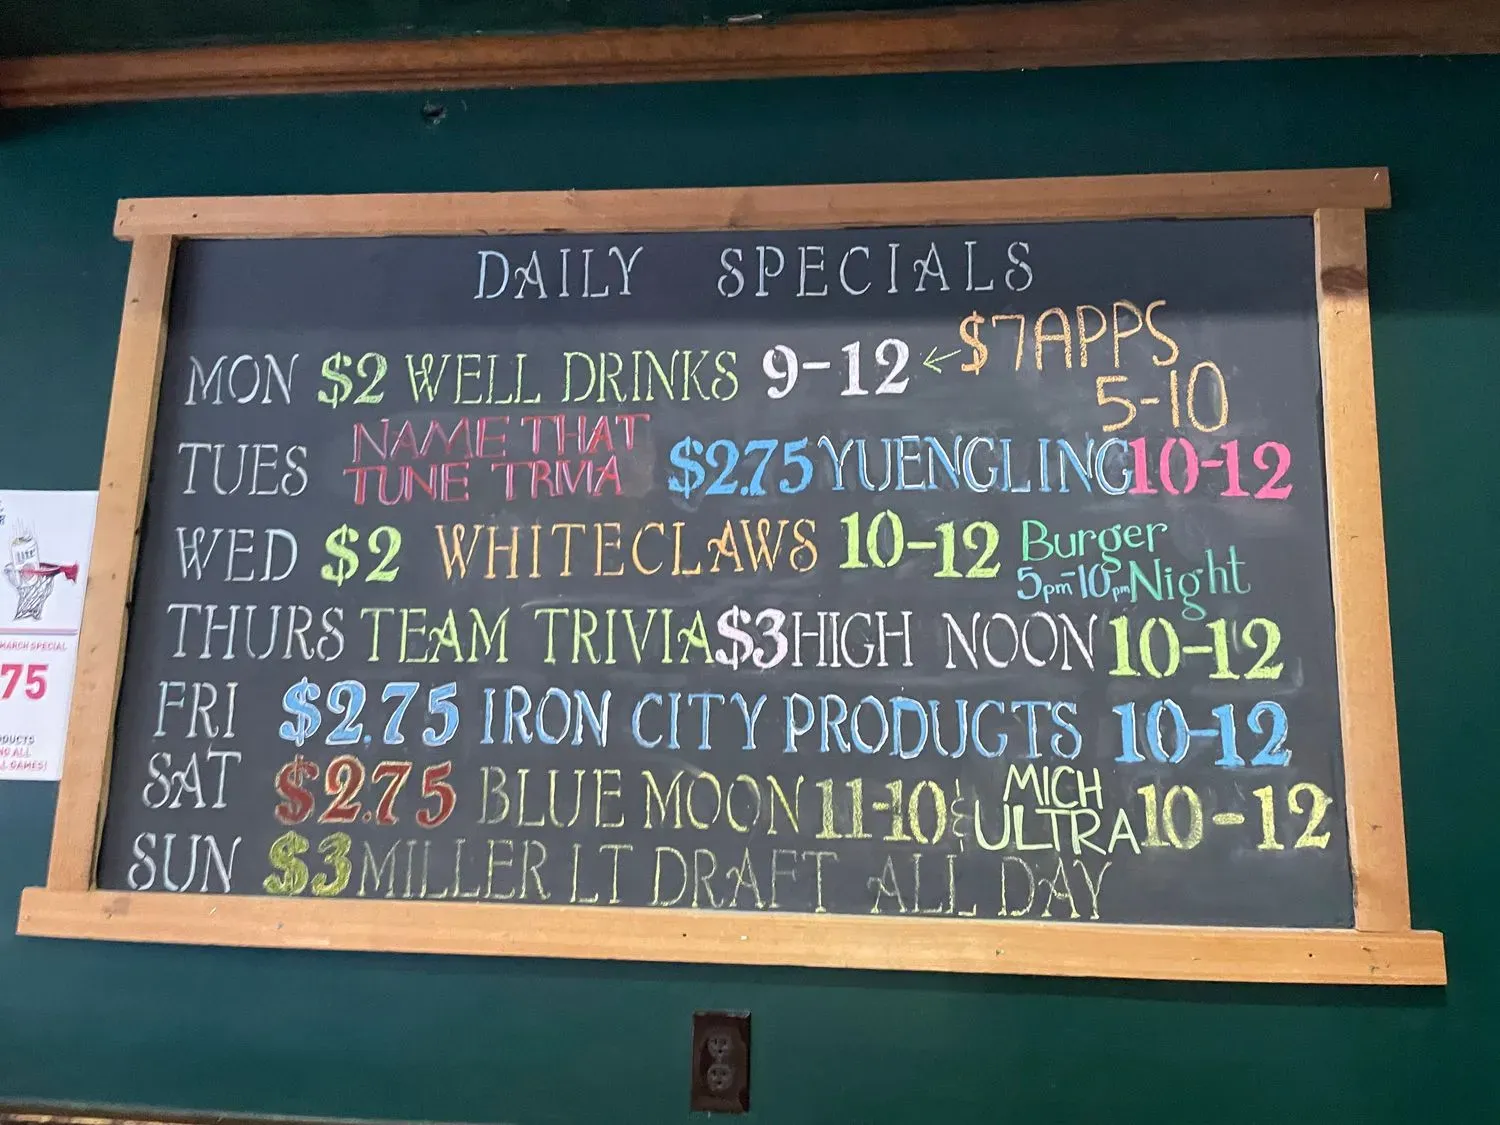 DAILY SPECIALS
MON $2 WELL DRINKS 9-12 ← $7 APPS
5-10
TUES NAME THAT
TUNE TRIVIA $2.75 YUENGLING 10-12
WED $2 WHITECLAWS 10-12 Burger
5pm-10pm Night
THURS TEAM TRIVIA $3 HIGH NOON 10-12
FRI $2.75 IRON CITY PRODUCTS 10-12
SAT $2.75 BLUE MOON 11-10 & MICH
ULTRA 10-12
SUN $3 MILLER LT DRAFT ALL DAY
MARCH SPECIAL
75
ALL
GAMES!